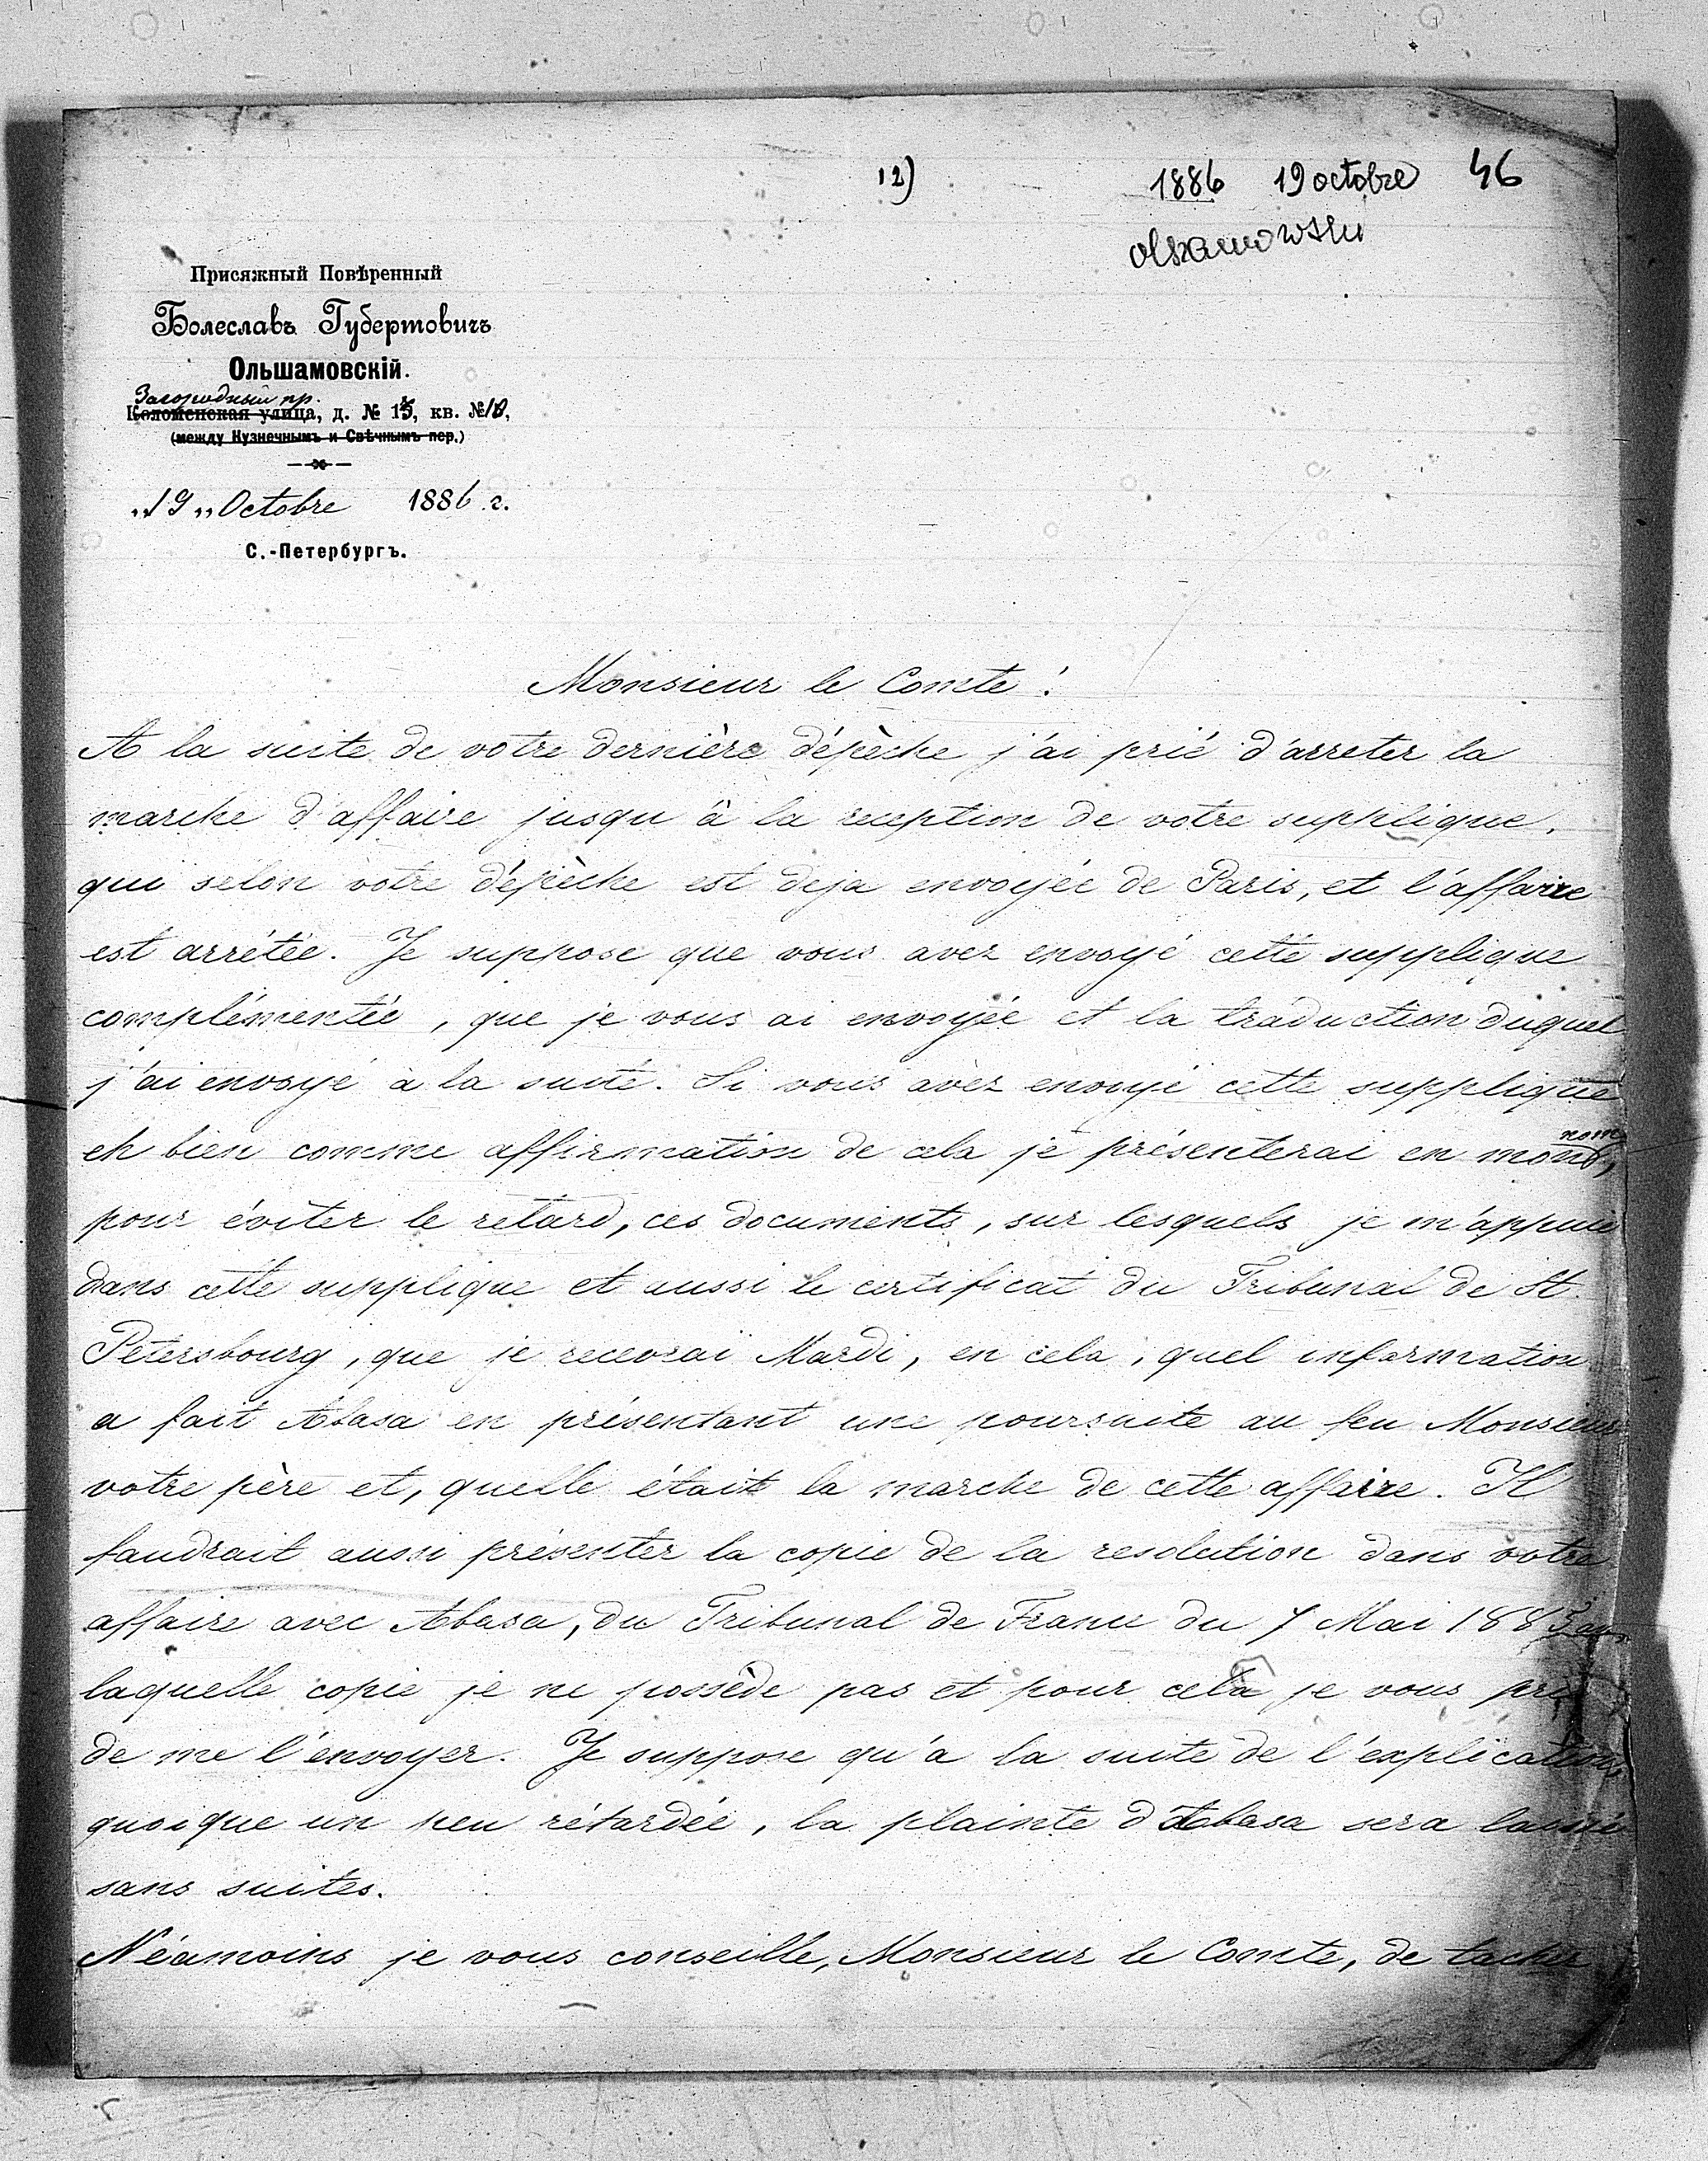 12)
1886 19 octobre 46
Olszamowski
Присяжный Повѣренный
Болеславъ Губертовичъ
Ольшамовскій.
Загородный пр.
Коломенская улица, д. № 15, кв. № 10,
(между Кузнечнымъ и Свѣчнымъ пер.)
„19„ Octobre 1886 г.
С.-Петербургъ.
Monsieur le Comte!
A la suite de votre dernière dépèche j'ai prié d'arreter la
marche d'affaire jusqu'à la reception de votre supplique,
qui selon votre dépèche est deja envoyée de Paris, et l'affaire
est arrétée. Je suppose que vous avez envoyé cette supplique
complémentée, que je vous ai envoyée et la traduction duquel
j'ai envoyé à la suite. Si vous avèz envoyé cette supplique
eh bien comme affirmation de cela je présenterai en mon nom,
pour éviter le retard, ces documents, sur lesquels je m'appuie
dans cette supplique et aussi le certificat du Tribunal de St.
Petersbourg, que je recevrai Mardi, en cela, quel information
a fait Abasa en présentant une poursuite au feu Monsieur
votre père et, quelle était la marche de cette affaire. Il
faudrait aussi présenter la copie de la resolution dans votre
affaire avec Abasa, du Tribunal de France du 7 Mai 1885
laquelle copie je ne possède pas et pour cela je vous prie
de me l'envoyer. Je suppose qu'a la suite de l'explication,
quoique un peu rétardée, la plainte d'Abasa sera laissé
sans suites.
Néamoins je vous conseille, Monsieur le Comte, de tacher